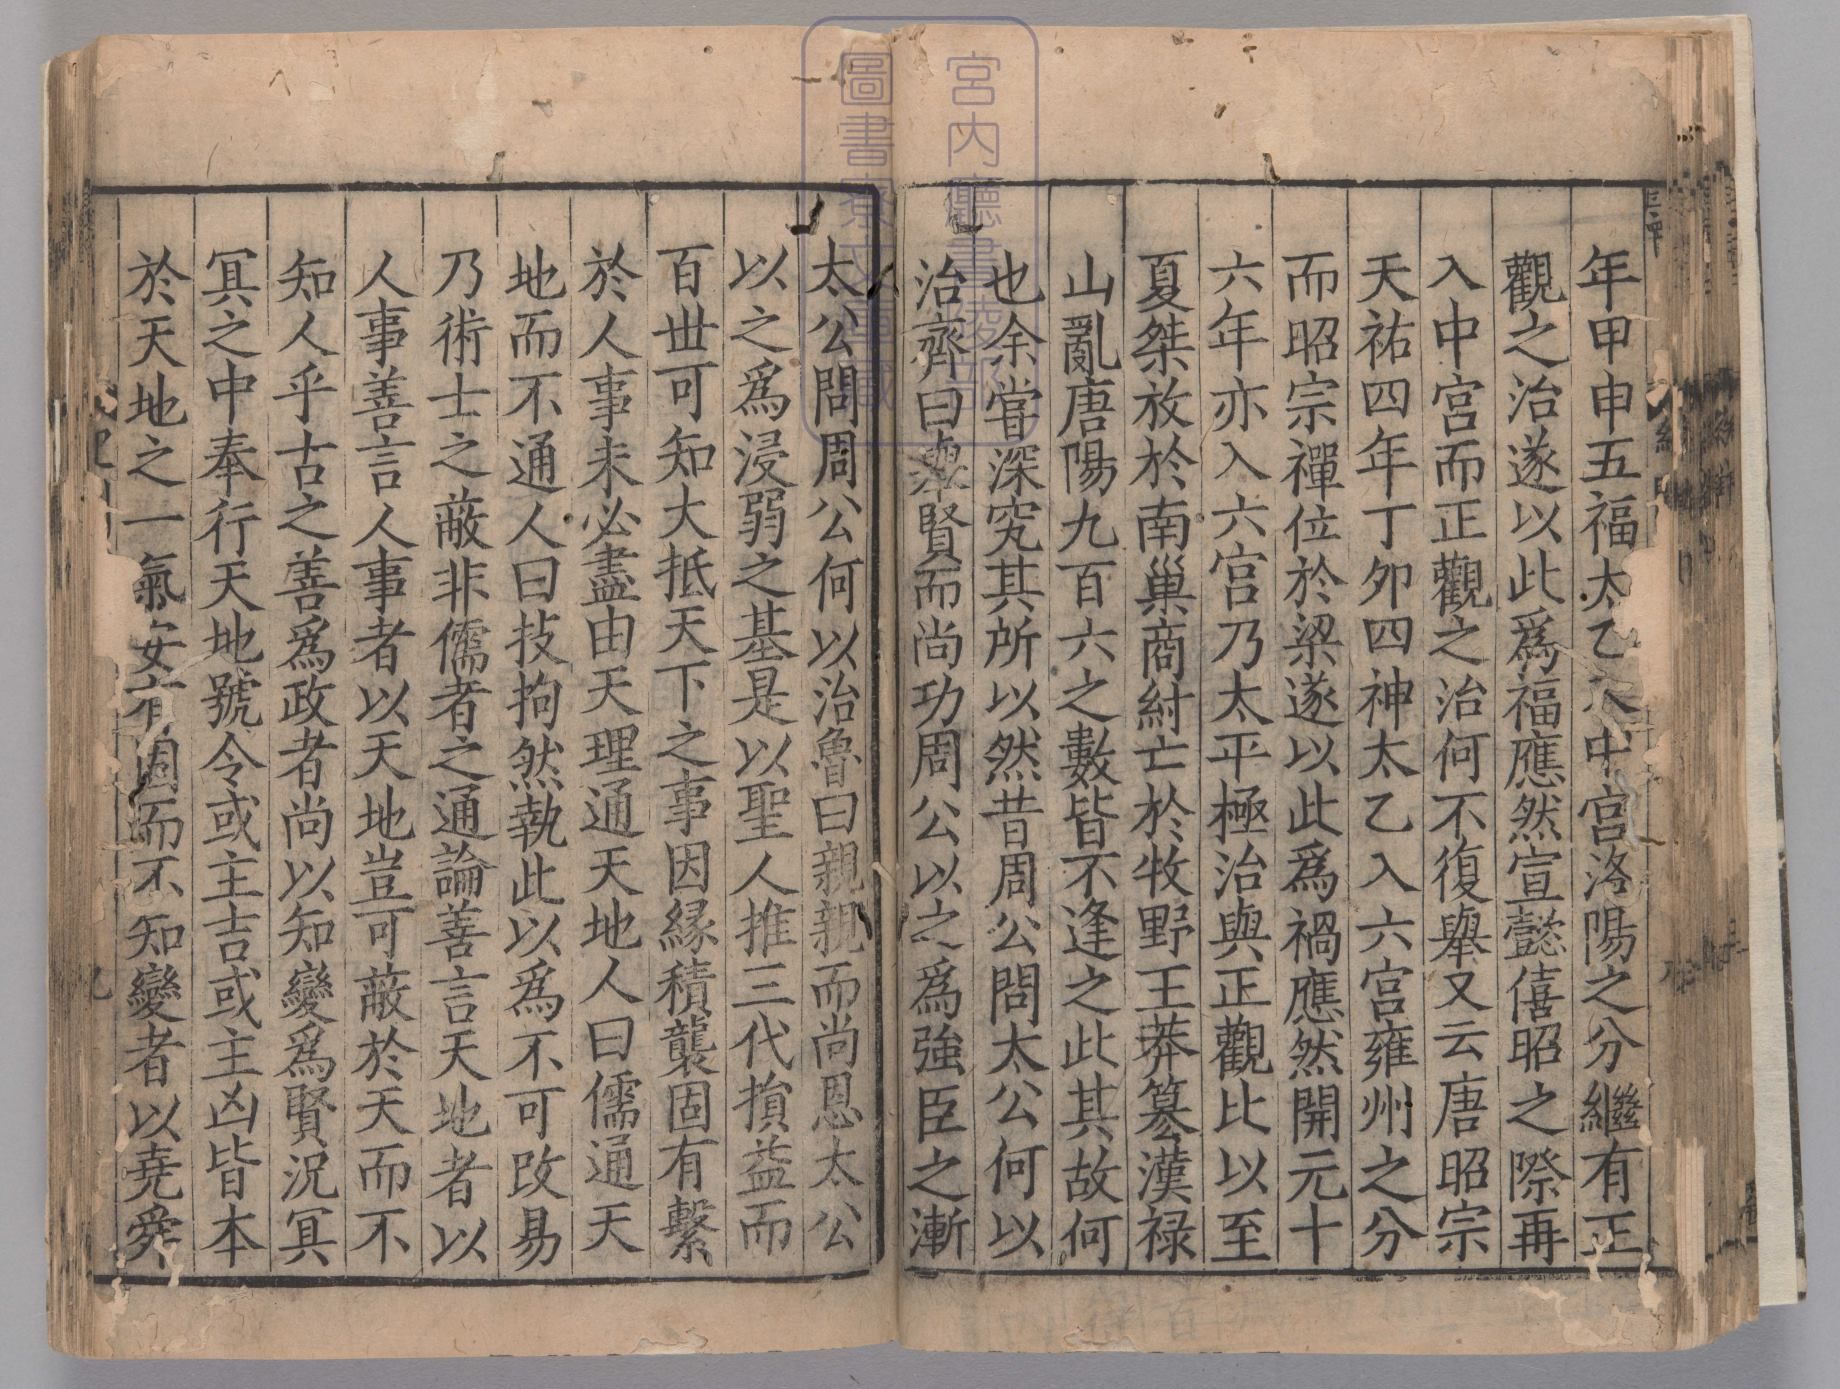 年甲申五福太乙入中宮洛陽之分繼有正
觀之治遂以此爲福應然宣懿僖昭之際再
入中宮而正觀之治何不復舉又云唐昭宗
天祐四年丁夘四神太乙入六宮雍州之分
而昭宗禪位於梁遂以此爲禍應然開元十
六年亦入六宮乃太平極治與正觀比以至
夏桀放於南巢商紂亡於牧野王莽篡漢禄
山亂唐陽九百六之數皆不逢之此其故何
也余甞深究其所以然昔周公問太公何以
治齊曰舉賢而尚功周公以之爲強臣之漸
太公問周公何以治魯曰親親而尚恩太公
以之爲浸弱之基是以聖人推三代損益而
百丗可知大抵天下之事因緣積襲固有繫
於人事未必盡由天理通天地人曰儒通天
地而不通人曰技拘然執此以爲不可改易
乃術士之蔽非儒者之通論善言天地者以
人事善言人事者以天地豈可蔽於天而不
知人乎古之善爲政者尚以知變爲賢況冥
冥之中奉行天地號令或主吉或主凶皆本
於天地之一氣安有固而不知變者以堯舜
宮内廳書陵部
圖書寮文庫蔵